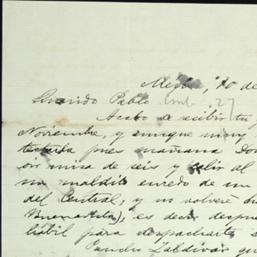 10 de
Querido Pablo
Acabo de recibir tu
Noviembre, y aunque muy
pues mañana Dom
oir misa de seis y salir al
un maldito enredo de un
del Central, y no volveré
Buenavista), es decir despu
hábil para despacharte s
Zaldívar qu